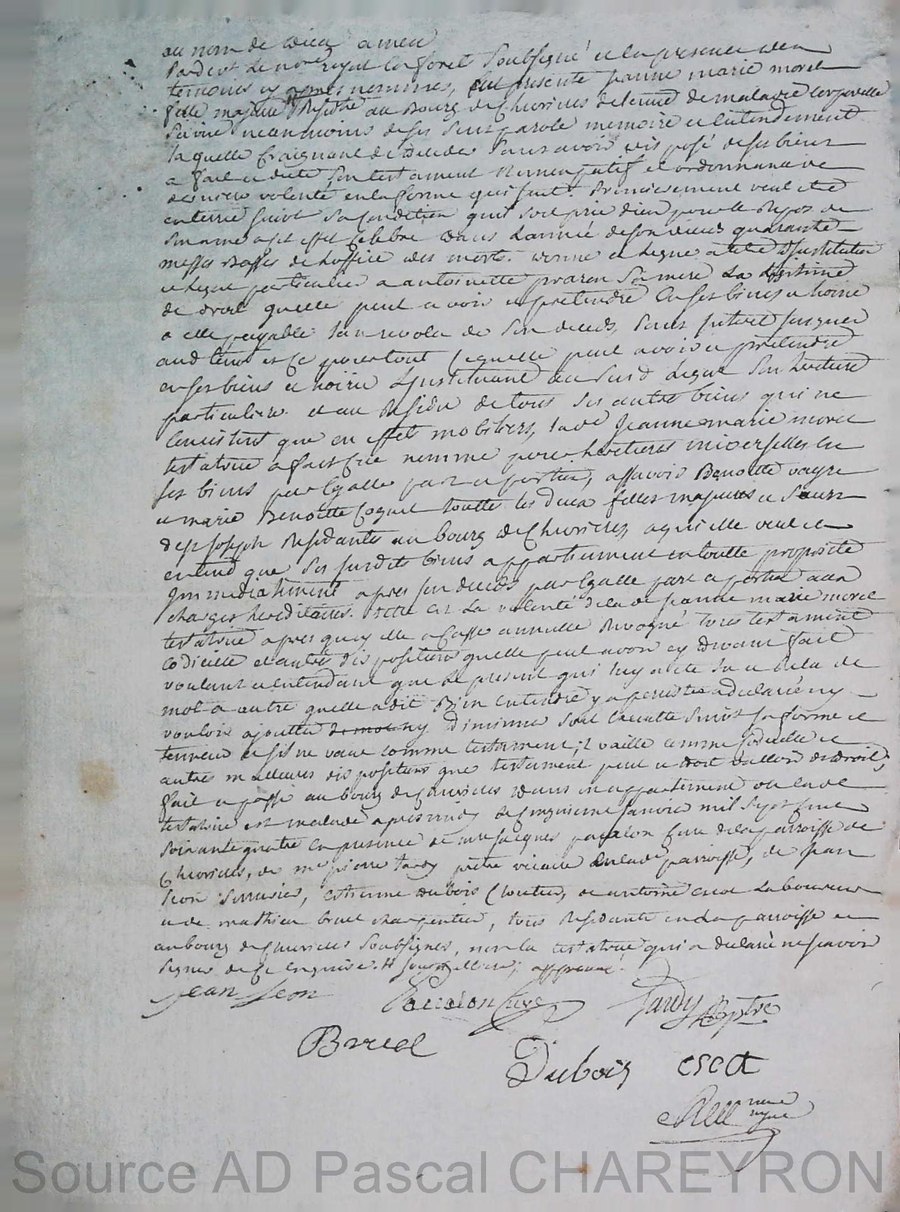 au nom de dieu amen
Pardevt Le nore royal en forest Soubsigné et en presence des
temoins cy apres nommes, fut presente jeanne marie morel
fille majeure Residte au Bourg de Chevrieres detenue de maladie corporelle
Saine neanmoins de ses Sens parole memoire et entendement
laquelle Craignant de deceder Sans avoir disposé de ses biens
a fait et dicté Son testament nuncupatif et ordonnance de
derniere volonté en la forme qui suit. Premierement veut etre
enterrée suivt Sa Condition qu'il soit prié dieu pour le Repos de
Son ame a cet effet Celebré dans L'année de son deces quarante
messes Basses de L'office des morts. donne et legue a titre D'Institution
et legue particulier a antoinette Sa mere La Legitime
de droit quelle peut avoir et pretendre en ses biens et hoirie
a elle payable Lan revolu de Son deces, Sans Interet Jusques
aud tems et Ce pour tout Ce quelle peut avoir et pretendre
en ses biens et hoirie L'Instituant au Susd Legue Son heritiere
particuliere. et au Residu de tous Ses autres biens qui ne
Consistent que en effets mobiliers, lade Jeanne marie morel
testatrice a fait Crée nommé pour heritieres universelles en
Ses biens par Egalle part et portion, assavoir Benoitte
et marie Benoitte toutte les deux filles majeures et Sœurs
de Joseph Residante au bourg de Chevrieres, a qui elle veut et
entend que Ses Susdits biens appartiennent en toutte proprieté
Immediatement apres Son deces par Egalle part et portion aux
charges hereditaires. telle est La volonté de lade Jeanne marie morel
testatrice apres quoy elle a Casse annulle Revoqué tous testament
Codicille et autres dispositions quelle peut avoir cy devant fait
voulant et entendant que Le present qui luy a eté Lu et Relu de
mot a autre quelle a dit Bien entendre y a persisté a declaré ny
vouloir ajoutter ny diminuer Soit executté Suivt Sa forme et
teneur et S'il ne vaut comme testament; il vaille comme codicille et
autres meilleures dispositions que testament peut et doit valloir de droit,
fait et passé au bourg de Chevrieres dans un appartement ou lade
testatrice est malade apres midy Le janvier mil Sept Cent
Soixante quatre En presence de mre Jacques Curé de la parroisse de
Chevrieres, de mre pierre tardy prêtre vicaire de lade parroisse, de Jean
Leon Serrurier, Estienne dubois Cloutier, de antoine escot Laboureur
et de mathieu bruel charpentier, tous Residants en La parroisse et
au bourg de Chevrieres Soubsignes, non la testatrice qui a declaré ne Scavoir
Signer de Ce enquise. approuvé.
Jean Leon
Curé
Tardy ptre
Bruel
Dubois
escot